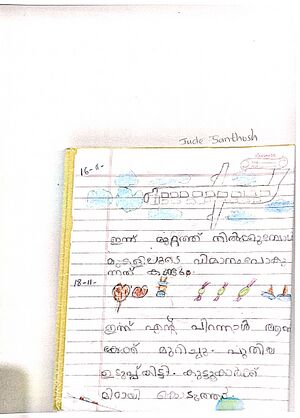 Jude Santhosh
16-11-
ഇന്ന് മുറ്റത്ത് നിൽക്കുമ്പോൾ
മുകളിലൂടെ വിമാനം പോകു
ന്നത് കണ്ടു.
18-11-
ഇന്ന് എന്റെ പിറന്നാൾ ആണ്
കേക്ക് മുറിച്ചു. പുതിയ
ഉടുപ്പിട്ടു. കൂട്ടുകാർക്ക്
മിഠായി കൊടുത്തു.